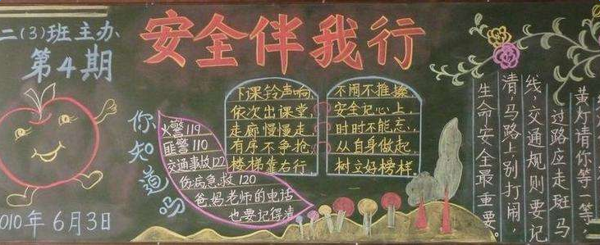 二(3)班主办
第4期
安全伴我行
010年6月3日
你知道吗
火警119
匪警110
交通事故122
伤病急救120
爸妈老师的电话
也要记得清
下课铃声响
依次出课堂,
走廊慢慢走
有序不争抢
楼梯靠右行
不闹不推搡
安全记心上,
时时不能忘,
从自身做起,
树立好榜样
黄灯请你等一等,
过路应走斑马
线,交通规则要记
清,马路上别打闹,
生命安全最重要。